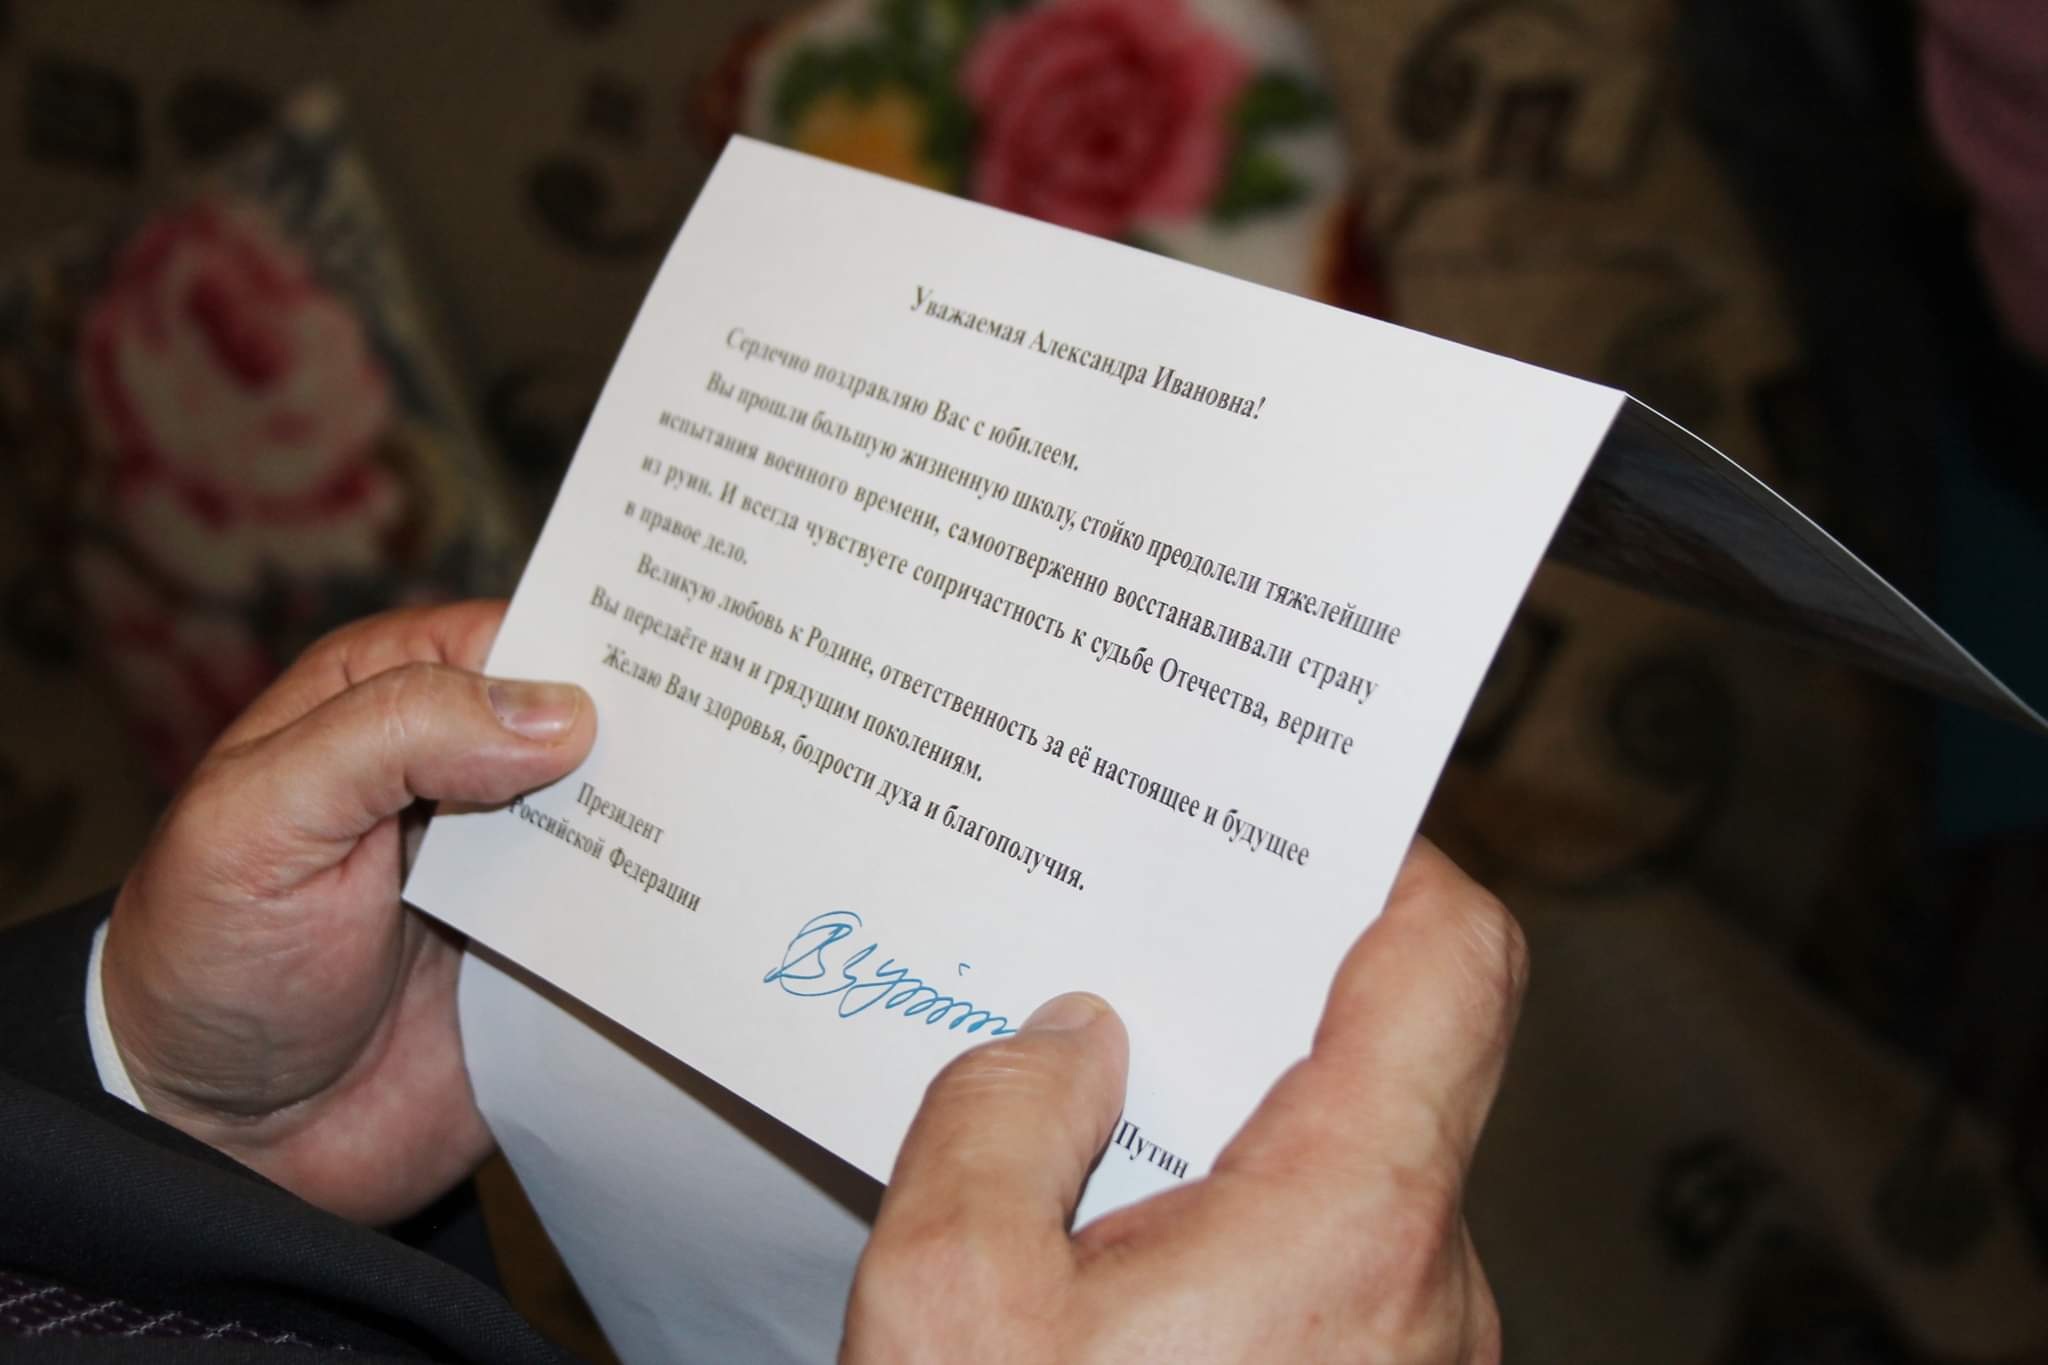 Уважаемая Александра Ивановна!
Сердечно поздравляю Вас с юбилеем.
Вы прошли большую жизненную школу, стойко преодолели тяжелейшие
испытания военного времени, самоотверженно восстанавливали страну
из руин. И всегда чувствуете сопричастность к судьбе Отечества, верите
в правое дело.
Великую любовь к Родине, ответственность за её настоящее и будущее
Вы передаёте нам и грядущим поколениям.
Желаю Вам здоровья, бодрости духа и благополучия.
Президент
Российской Федерации
Путин